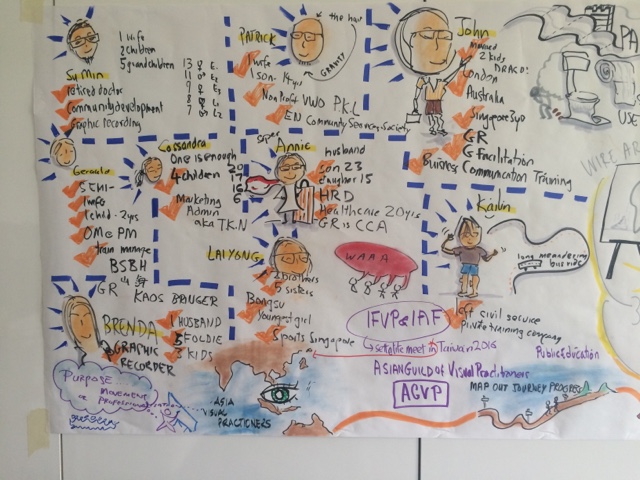 Su Min
1 wife
2 children
5 grandchildren
13
11
9
8
7
retired doctor
community development
Graphic recording
PATRICK
the hair
GRAVITY
1 wife
1 son - 14yrs
Non Profit VWO PKL
EN Community Services Society
John
married
2 kids
London
Australia
Singapore
GR
G Facilitation
Business Communication Training
PA
USE
WIRE AR
Gerald
1 wife
1 child - 2yrs
train manage
BSBH
GR
KAOS BAUGER
Cassandra
One is enough
4 children
20
17
16
6
Marketing
Admin
aka TK.N
Super
Annie
Husband
Son 23
daughter 15
HRD
Healthcare 20yrs
GR is CCA
Kailin
long meandering
bus ride
Left civil service
Private training company
LAI YONG
2 Brothers
5 sisters
Bongsu
Youngest girl
Sports Singapore
WAAA
IFVP & IAF
meet in Taiwan 2016
Public Education
ASIAN GUILD of Visual Practitioners
AGVP
MAP OUT JOURNEY PROGRESS
BRENDA
GRAPHIC
RECORDER
1 HUSBAND
5 FOLDIE
3 KIDS
PURPOSE
movement
ASIA
VISUAL
PRACTIONERS